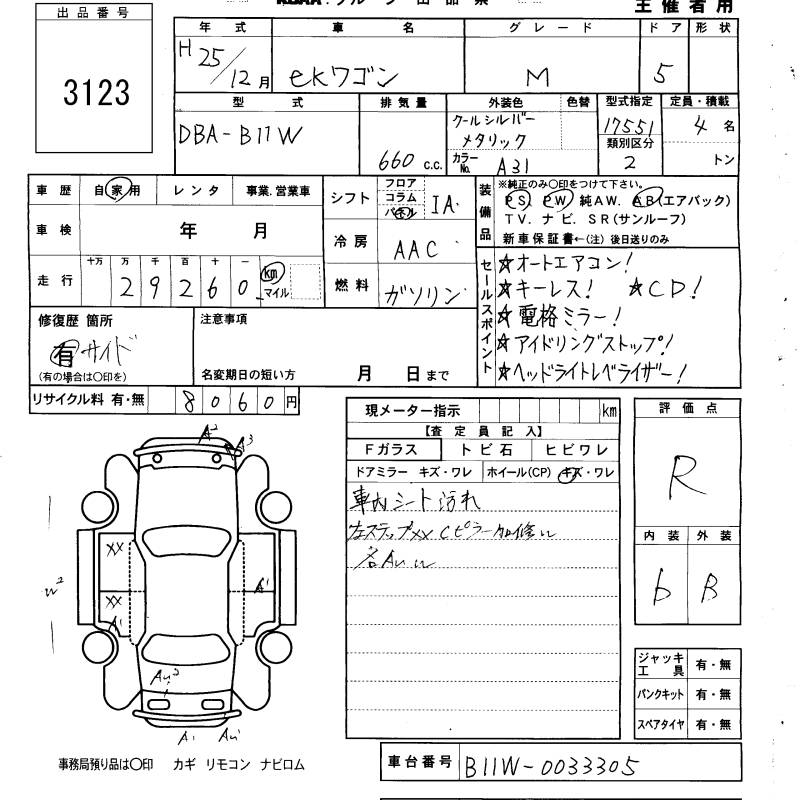 出品番号
3123
主催者用
年式 車名 グレード ドア 形状
H25/12月 eKワゴン M 5
型式 排気量 外装色 色替 型式指定 定員・積載
DBA-B11W 660c.c. クールシルバーメタリック カラーNo. A31 17551 4名
類別区分 2 トン
車歴 自家用 レンタ 事業.営業車
車検 年 月
走行 十万 万 千 百 十 一
29260 km マイル
シフト フロア コラム パネル IA
冷房 AAC
燃料 ガソリン
装備品 ※純正のみ〇印をつけて下さい。
PS. PW. 純AW. AB(エアバック)
TV. ナビ. SR(サンルーフ)
新車保証書←(注) 後日送りのみ
セールスポイント
☆オートエアコン!
☆キーレス! ☆CD!
☆電格ミラー!
☆アイドリングストップ!
☆ヘッドライトレベライザー!
修復歴 箇所
有 サイド
(有の場合は〇印を)
注意事項
名変期日の短い方 月 日まで
リサイクル料 有・無 8060円
現メーター指示 km
【査定員記入】
Fガラス トビ石 ヒビワレ
ドアミラー キズ・ワレ ホイール(CP) キズ・ワレ
車内シート汚れ
左ステップXX Cピラー
評価点
R
内装 外装
b B
A2 A3
XX
XX
A1
A1
W2
AU2
A1 AU1
ジャッキ工具 有・無
パンクキット 有・無
スペアタイヤ 有・無
事務局預り品は〇印 カギ リモコン ナビロム
車台番号 B11W-0033305